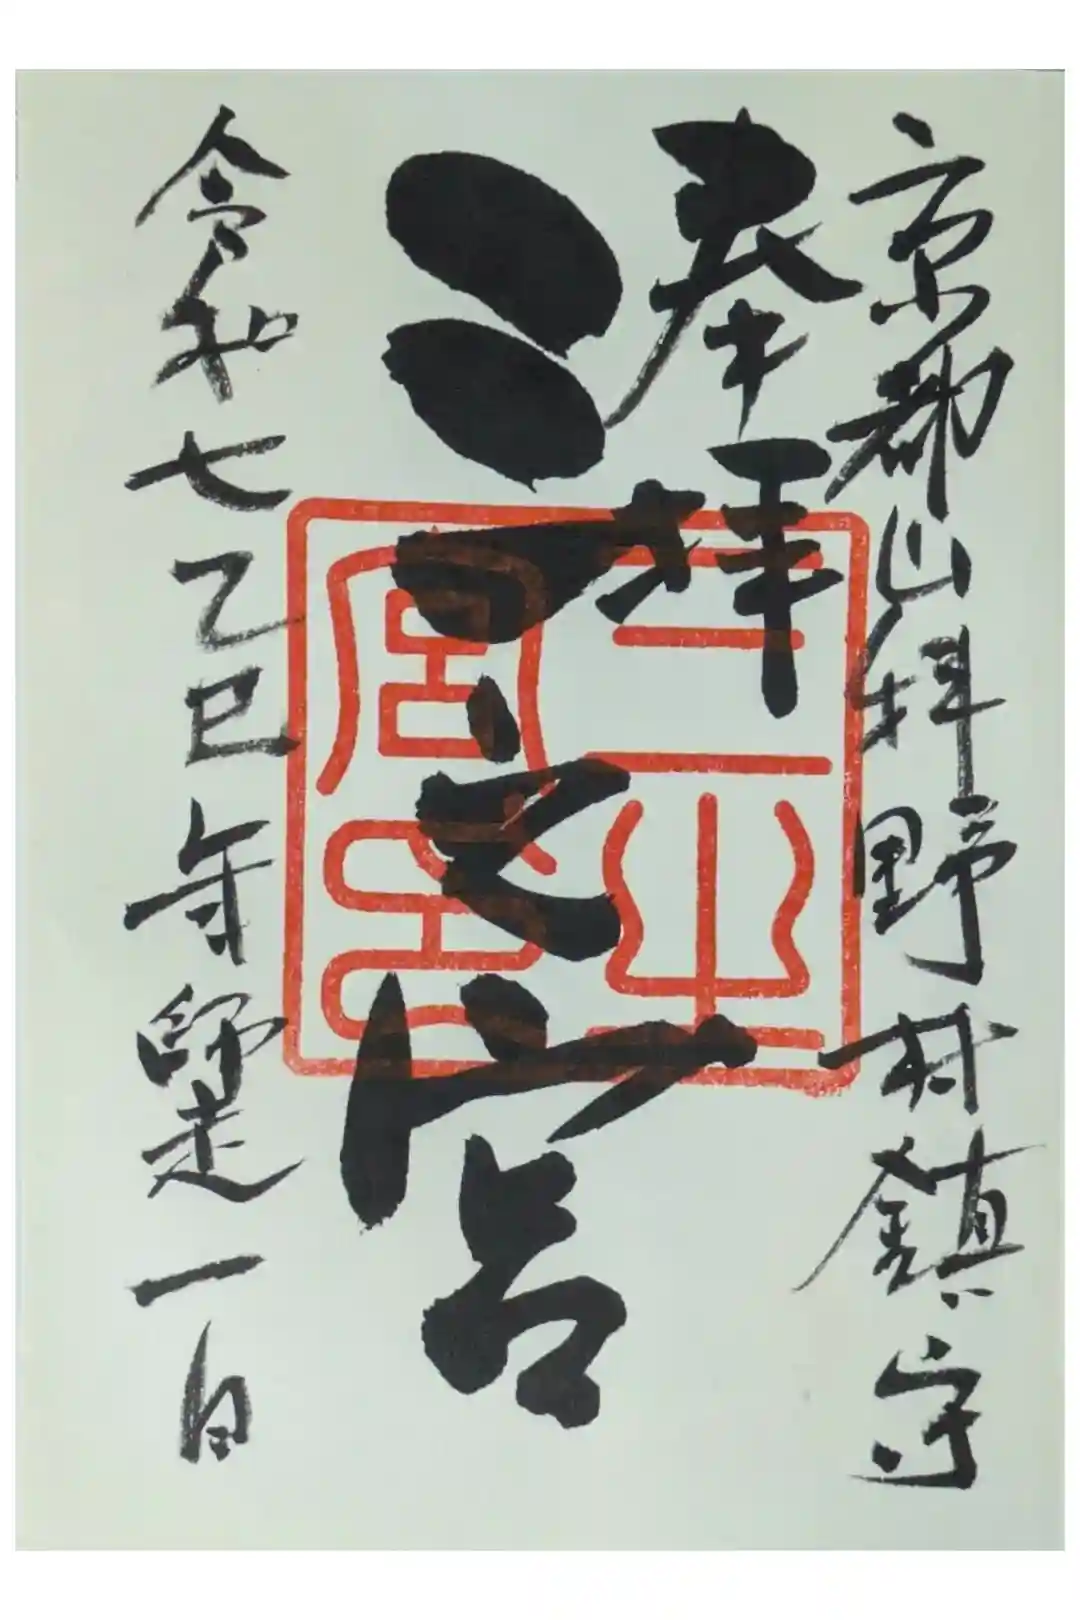 京都山科野村鎮守
奉拝
三之宮
三之
宮
令和七乙巳年師走一日